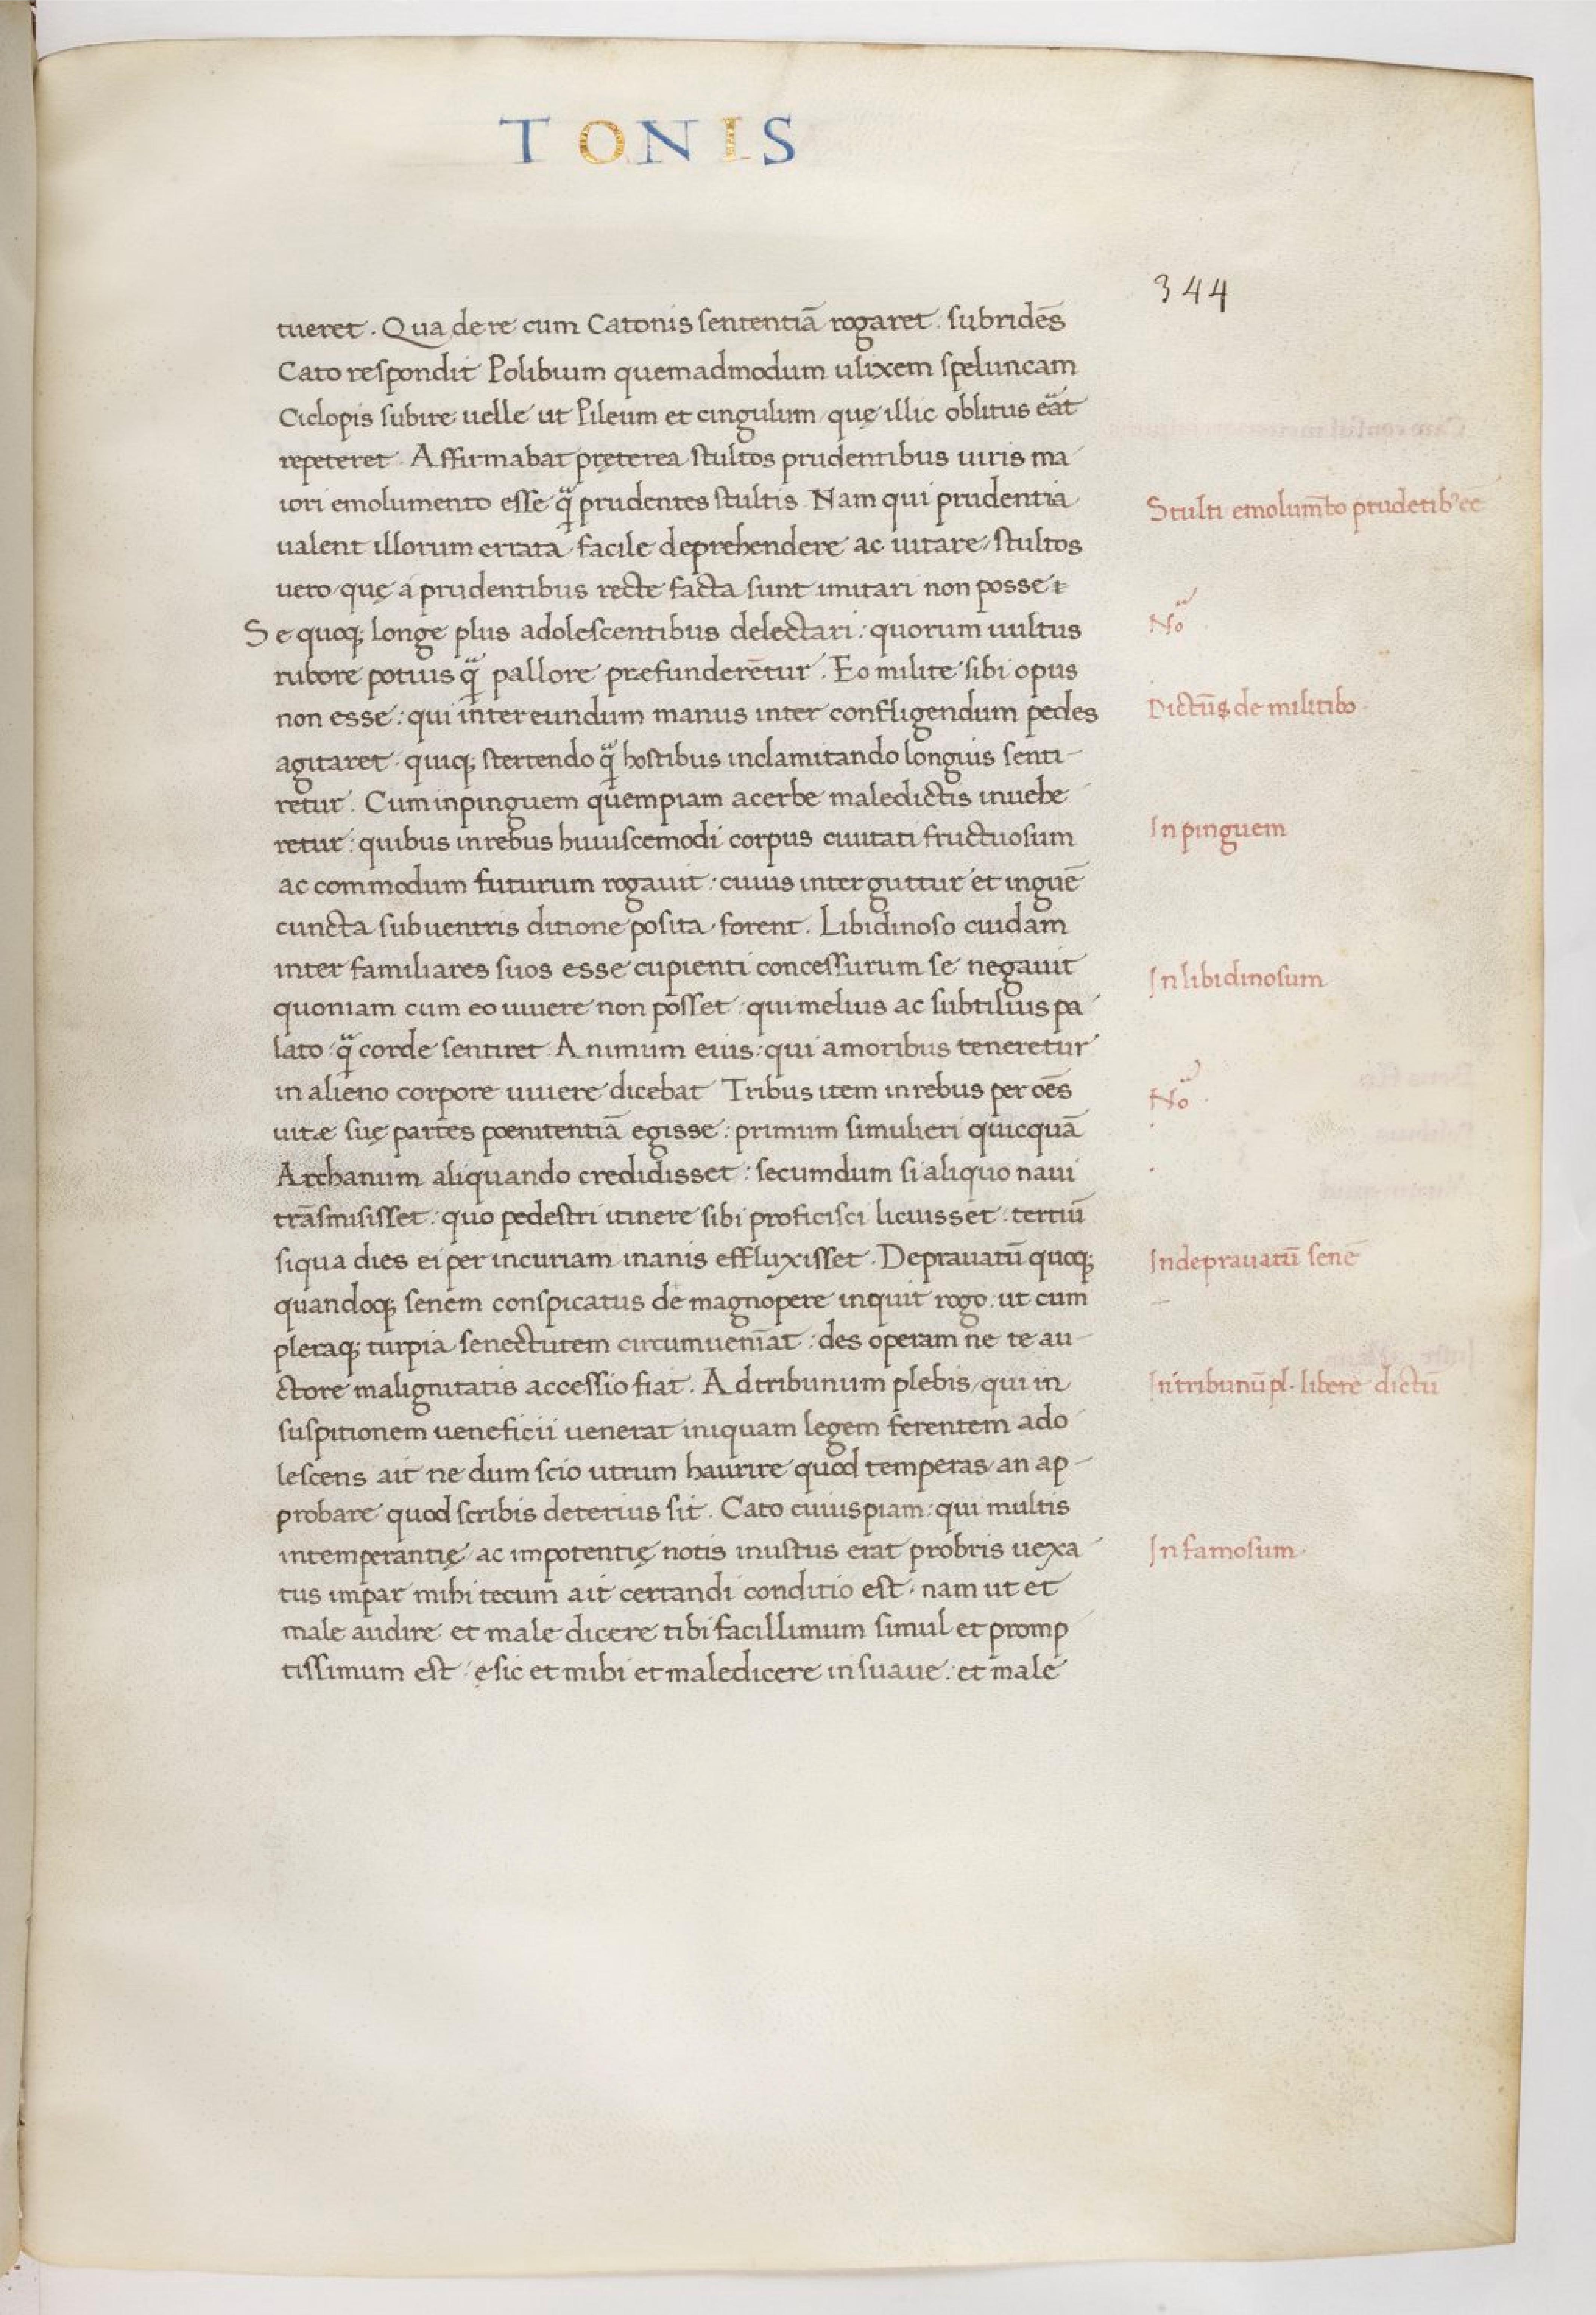 TONIS
344
tueret. Qua de re cum Catonis sententiā rogaret: subridēs
Cato respondit Polibium quemadmodum ulixem speluncam
Ciclopis subire uelle ut Pileum et cingulum quę illic oblitus eāt
repeteret. Affirmabat pręterea stultos prudentibus uiris ma
iori emolumento esse q̄ prudentes stultis. Nam qui prudentia
ualent illorum errata facile deprehendere ac uitare, stultos
uero quę a prudentibus recte facta sunt imitari non posse:
Se quoq; longe plus adolescentibus delectari: quorum uultus
rubore potius q̄ pallore præfunderētur. Eo milite sibi opus
non esse: qui inter eundum manus inter confligendum pedes
agitaret quiq; stertendo q̄ hostibus inclamitando longius senti-
retur. Cum in pinguem quempiam acerbe maledictis inuehe
retur: quibus in rebus huiuscemodi corpus ciuitati fructuosum
ac commodum futurum rogauit: cuius inter guttur et inguē
cuncta sub uentris ditione posita forent. Libidinoso cuidam
inter familiares suos esse cupienti concessurum se negauit
quoniam cum eo uiuere non posset: qui melius ac subtilius pa
lato q̄ corde sentiret. Animum eius: qui amoribus teneretur
in alieno corpore uiuere dicebat Tribus item in rebus per oēs
uitæ suę partes poenitentiā egisse: primum si mulieri quicquā
Archanum aliquando credidisset: secumdum si aliquo naui
trāsmisisset: quo pedestri itinere sibi proficisci licuisset: tertiū
si qua dies ei per incuriam inanis effluxisset. Deprauatū quoq;
quandoq; senem conspicatus de magnopere inquit rogo: ut cum
pleraq; turpia senectutem circumueniat: des operam ne te au-
ctore malignitatis accessio fiat. Ad tribunum plebis, qui in
suspitionem ueneficii uenerat iniquam legem ferentem ado
lescens ait ne dum scio utrum haurire quod temperas an ap-
probare quod scribis deterius sit. Cato cuiuspiam: qui multis
intemperantię ac impotentię notis inustus erat probris uexa
tus impar mihi tecum ait certandi conditio est. nam ut et
male audire et male dicere tibi facillimum simul et promp
tissimum est: ę sic et mihi et maledicere insuaue: et male
Stulti emolum̄to prudētib' eē
No
Dictūs de militibo.
In pinguem
In libidinosum
No
In deprauatū senē
In tribunū pl. libere dictū
In famosum.